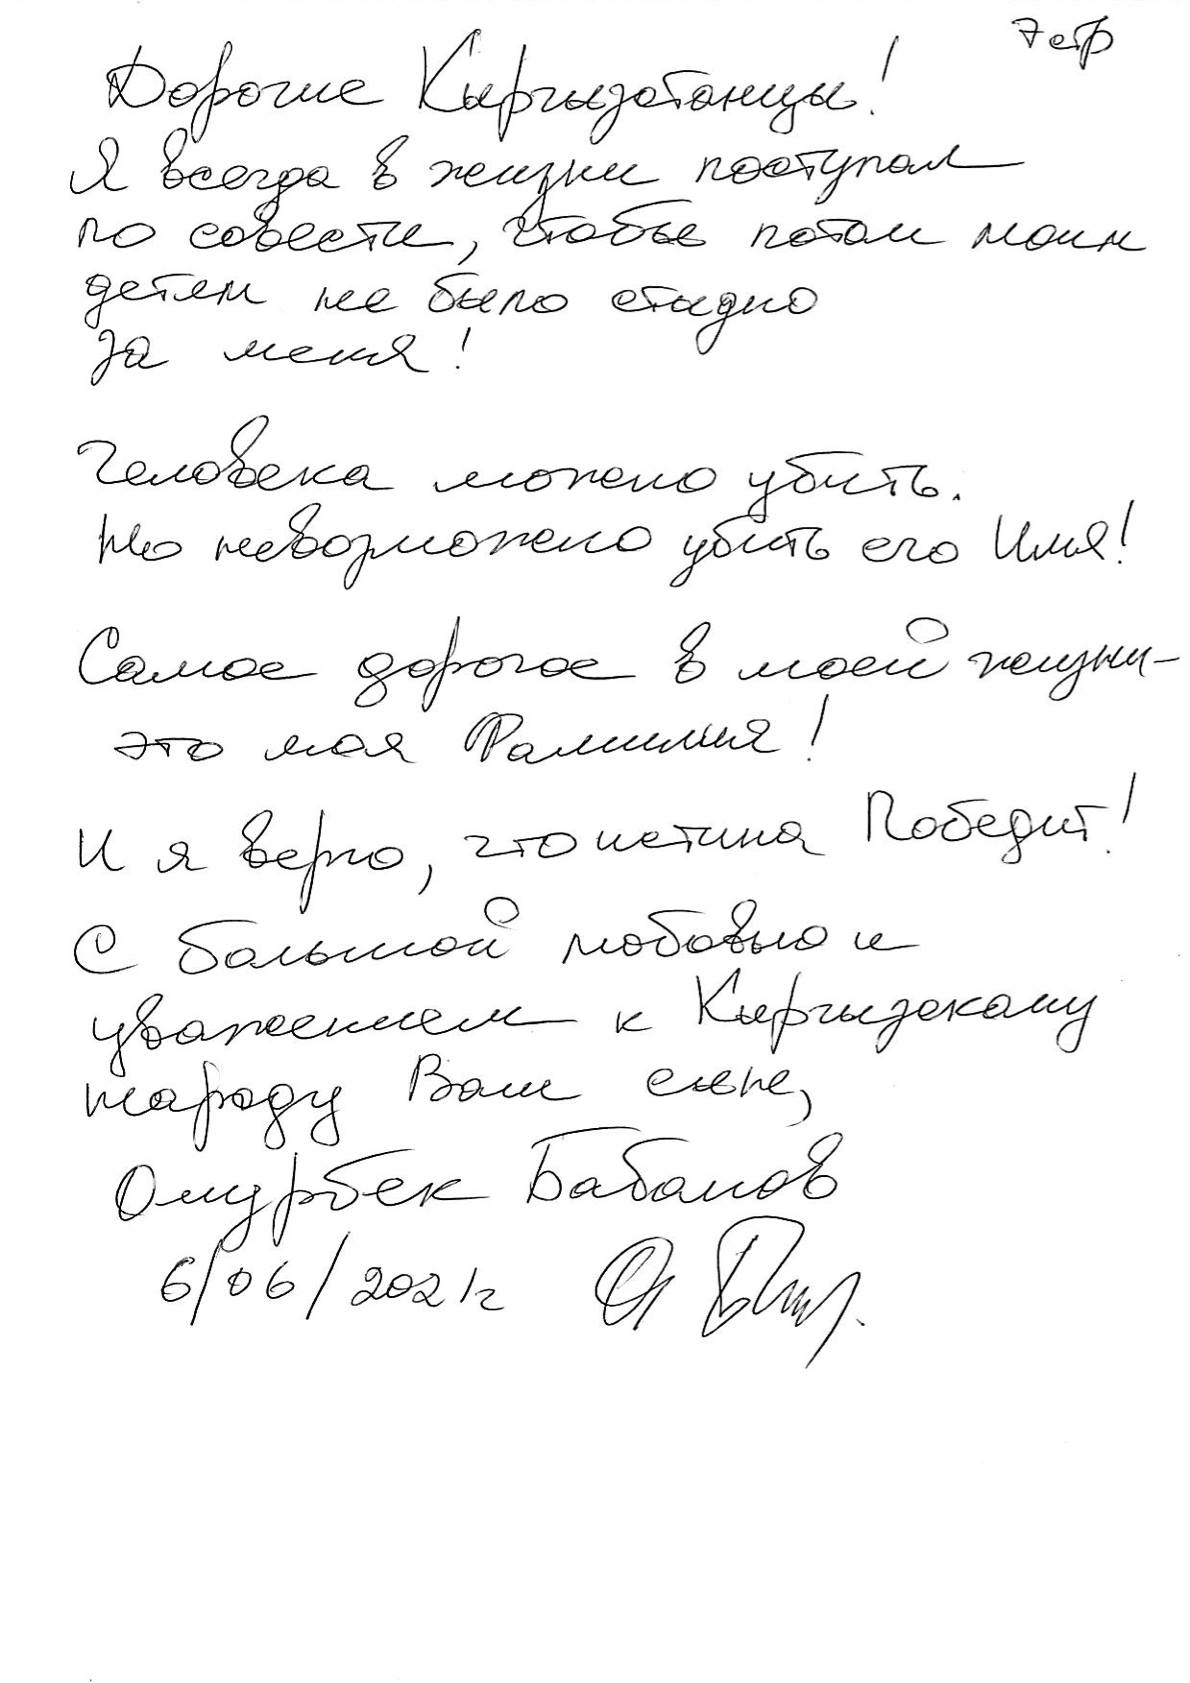 7стр
Дорогие Кыргызстанцы!
Я всегда в жизни поступал
по совести, чтобы потом моим
детям не было стыдно
за меня!
Человека можно убить.
Но невозможно убить его Имя!
Самое дорогое в моей жизни-
это моя Фамилия!
И я верю, что истина Победит!
С большой любовью и
уважением к Кыргызскому
народу Ваш сын,
Омурбек Бабанов
6/06/2021г